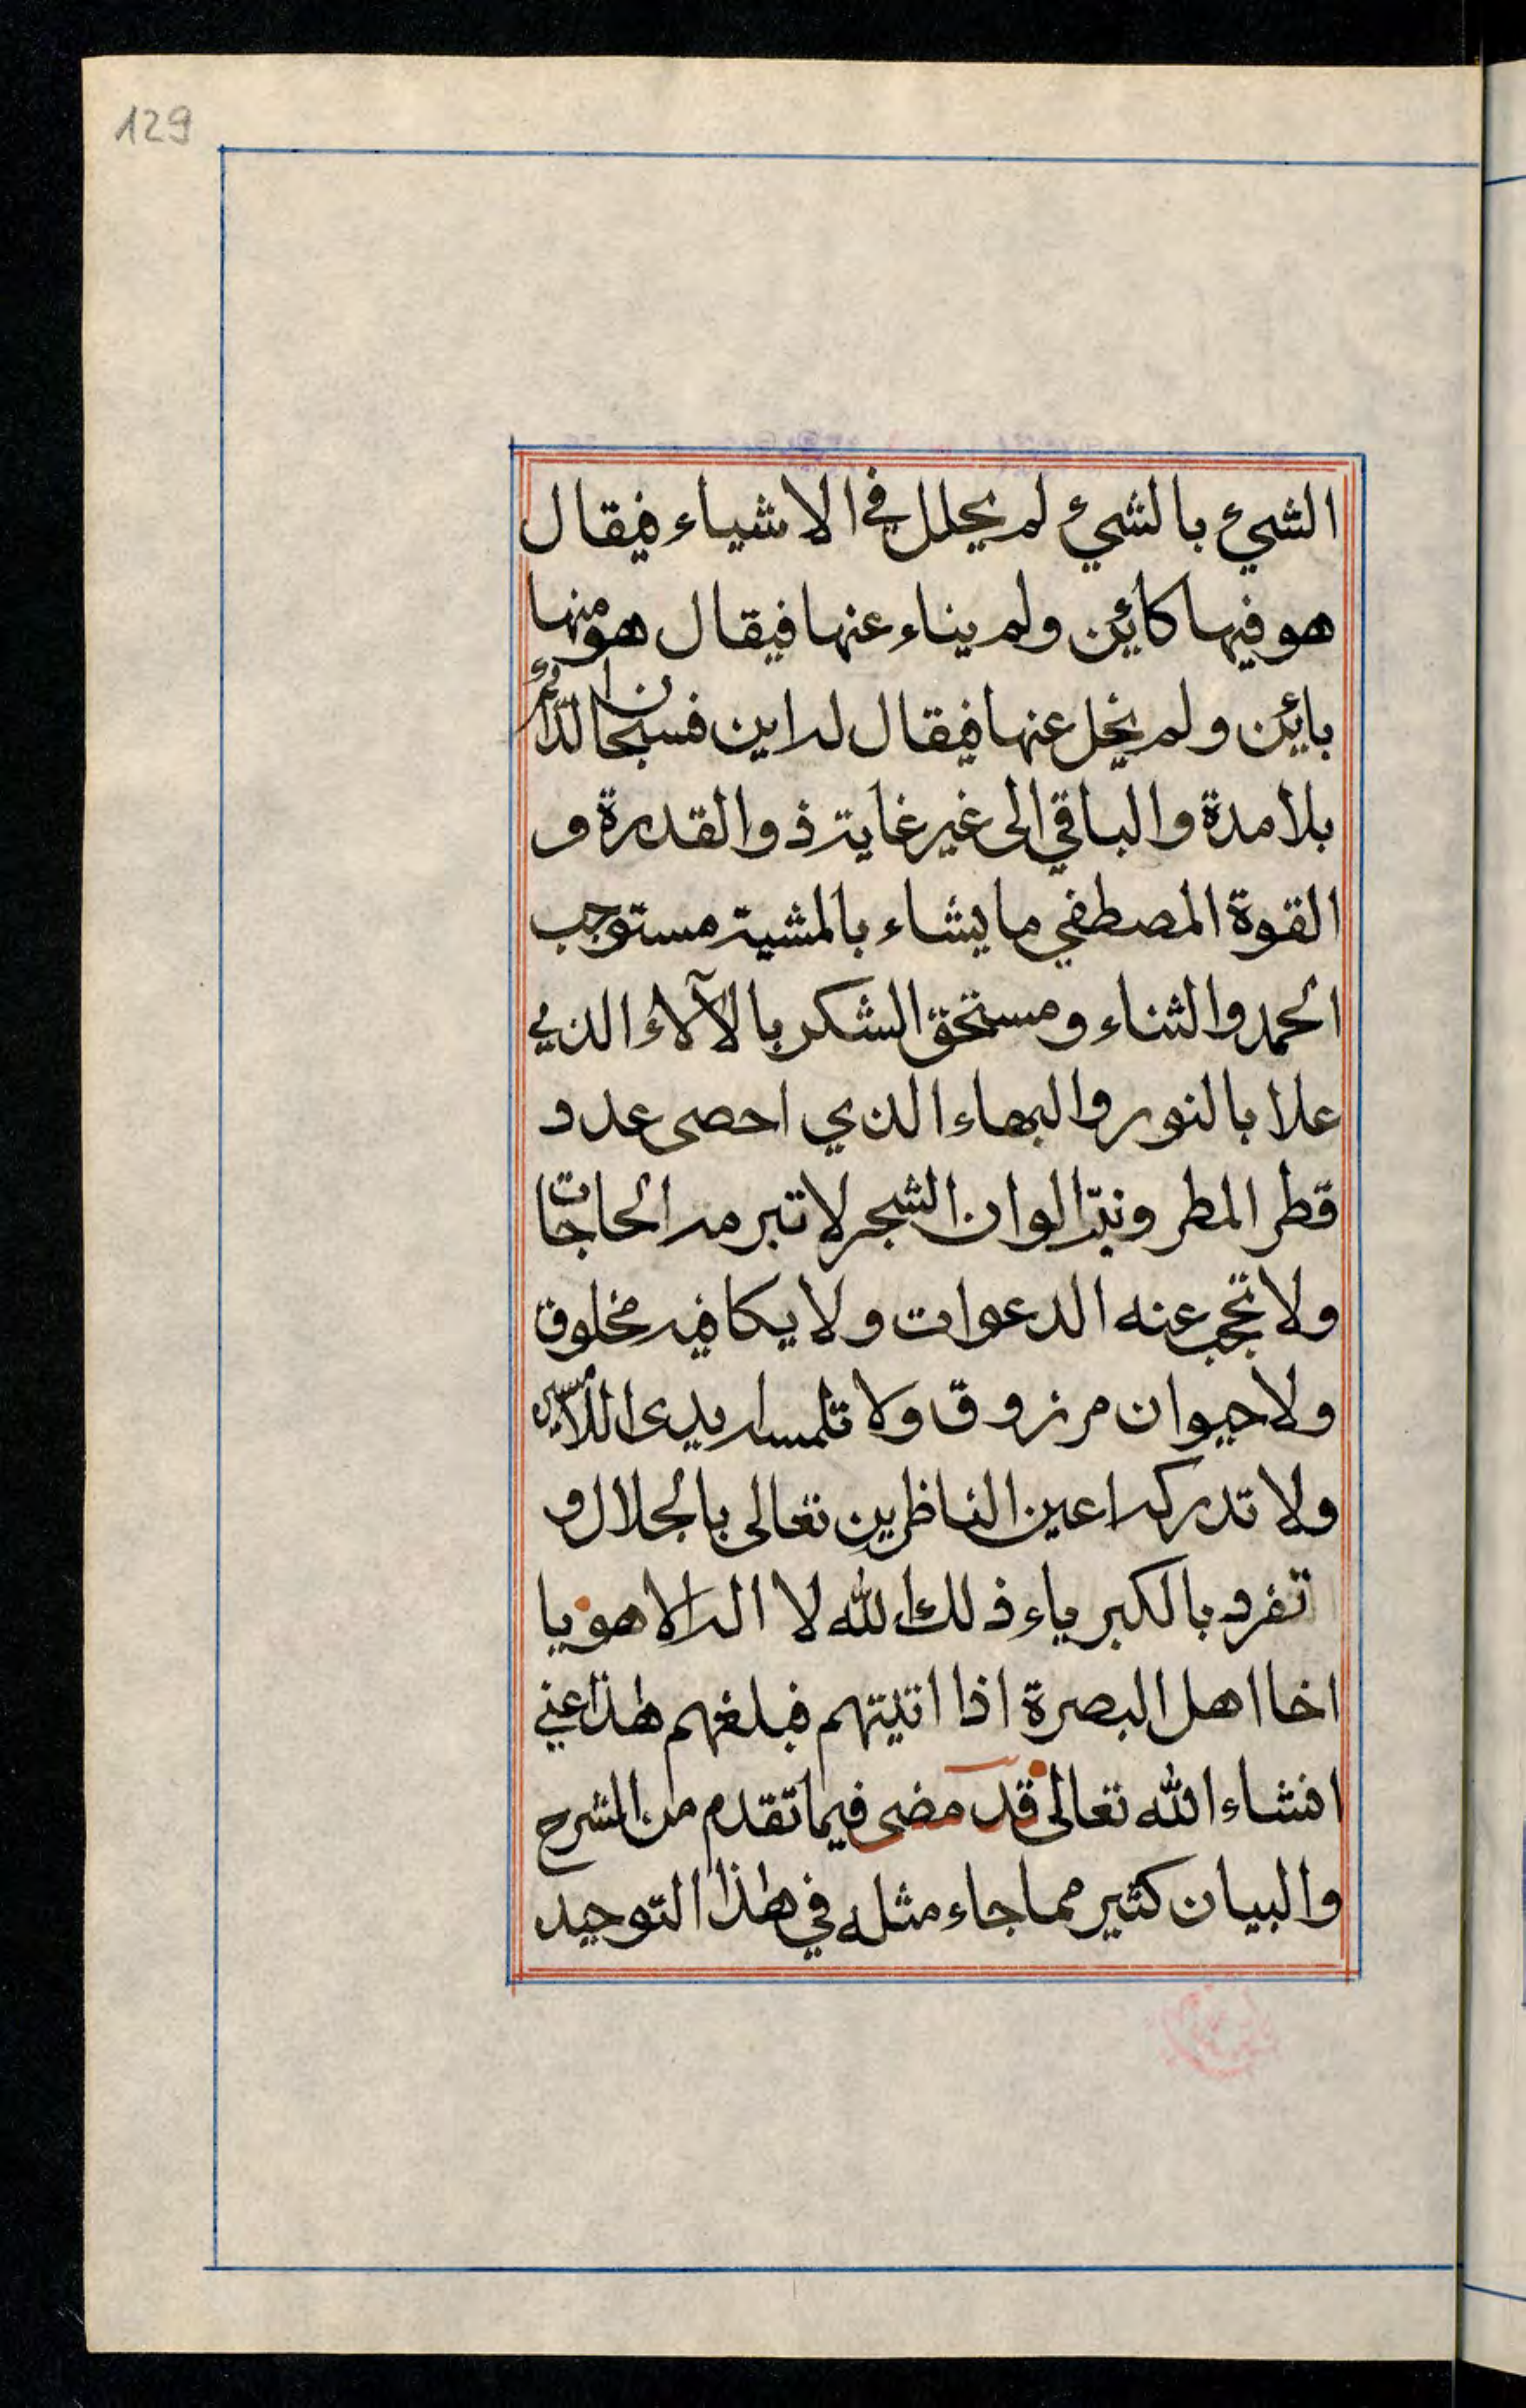 129
الشيء بالشيء لم يحلل في الاشياء فيقال
هو فيها كائن ولم يناء عنها فيقال هو منها
بائن ولم يخل عنها فيقال له اين فسبحان الدّائم
بلا مدة والباقي الى غير غاية ذو القدرة و
القوة المصطفي ما يشاء بالمشية مستوجب
الحمد والثناء ومستحق الشكر بالآلاء الذي
علا بالنور والبهاء الذي احصى عدد
قطر المطر ودبّر الوان الشجر لا تبرمه الحاجات
ولا تحجب عنه الدعوات ولا يكافيه مخلوق
ولا حيوان مرزوق ولا تلمسه ايدى اللامسين
ولا تدركه اعين الناظرين تعالى بالجلال و
تفرد بالكبرياء ذلك الله لا اله الا هو يا
اخا اهل البصرة اذا اتيتهم فبلغهم هذا عني
انشاء الله تعالى قد مضى فيما تقدم من الشرح
والبيان كثير مما جاء مثله في هذا التوحيد